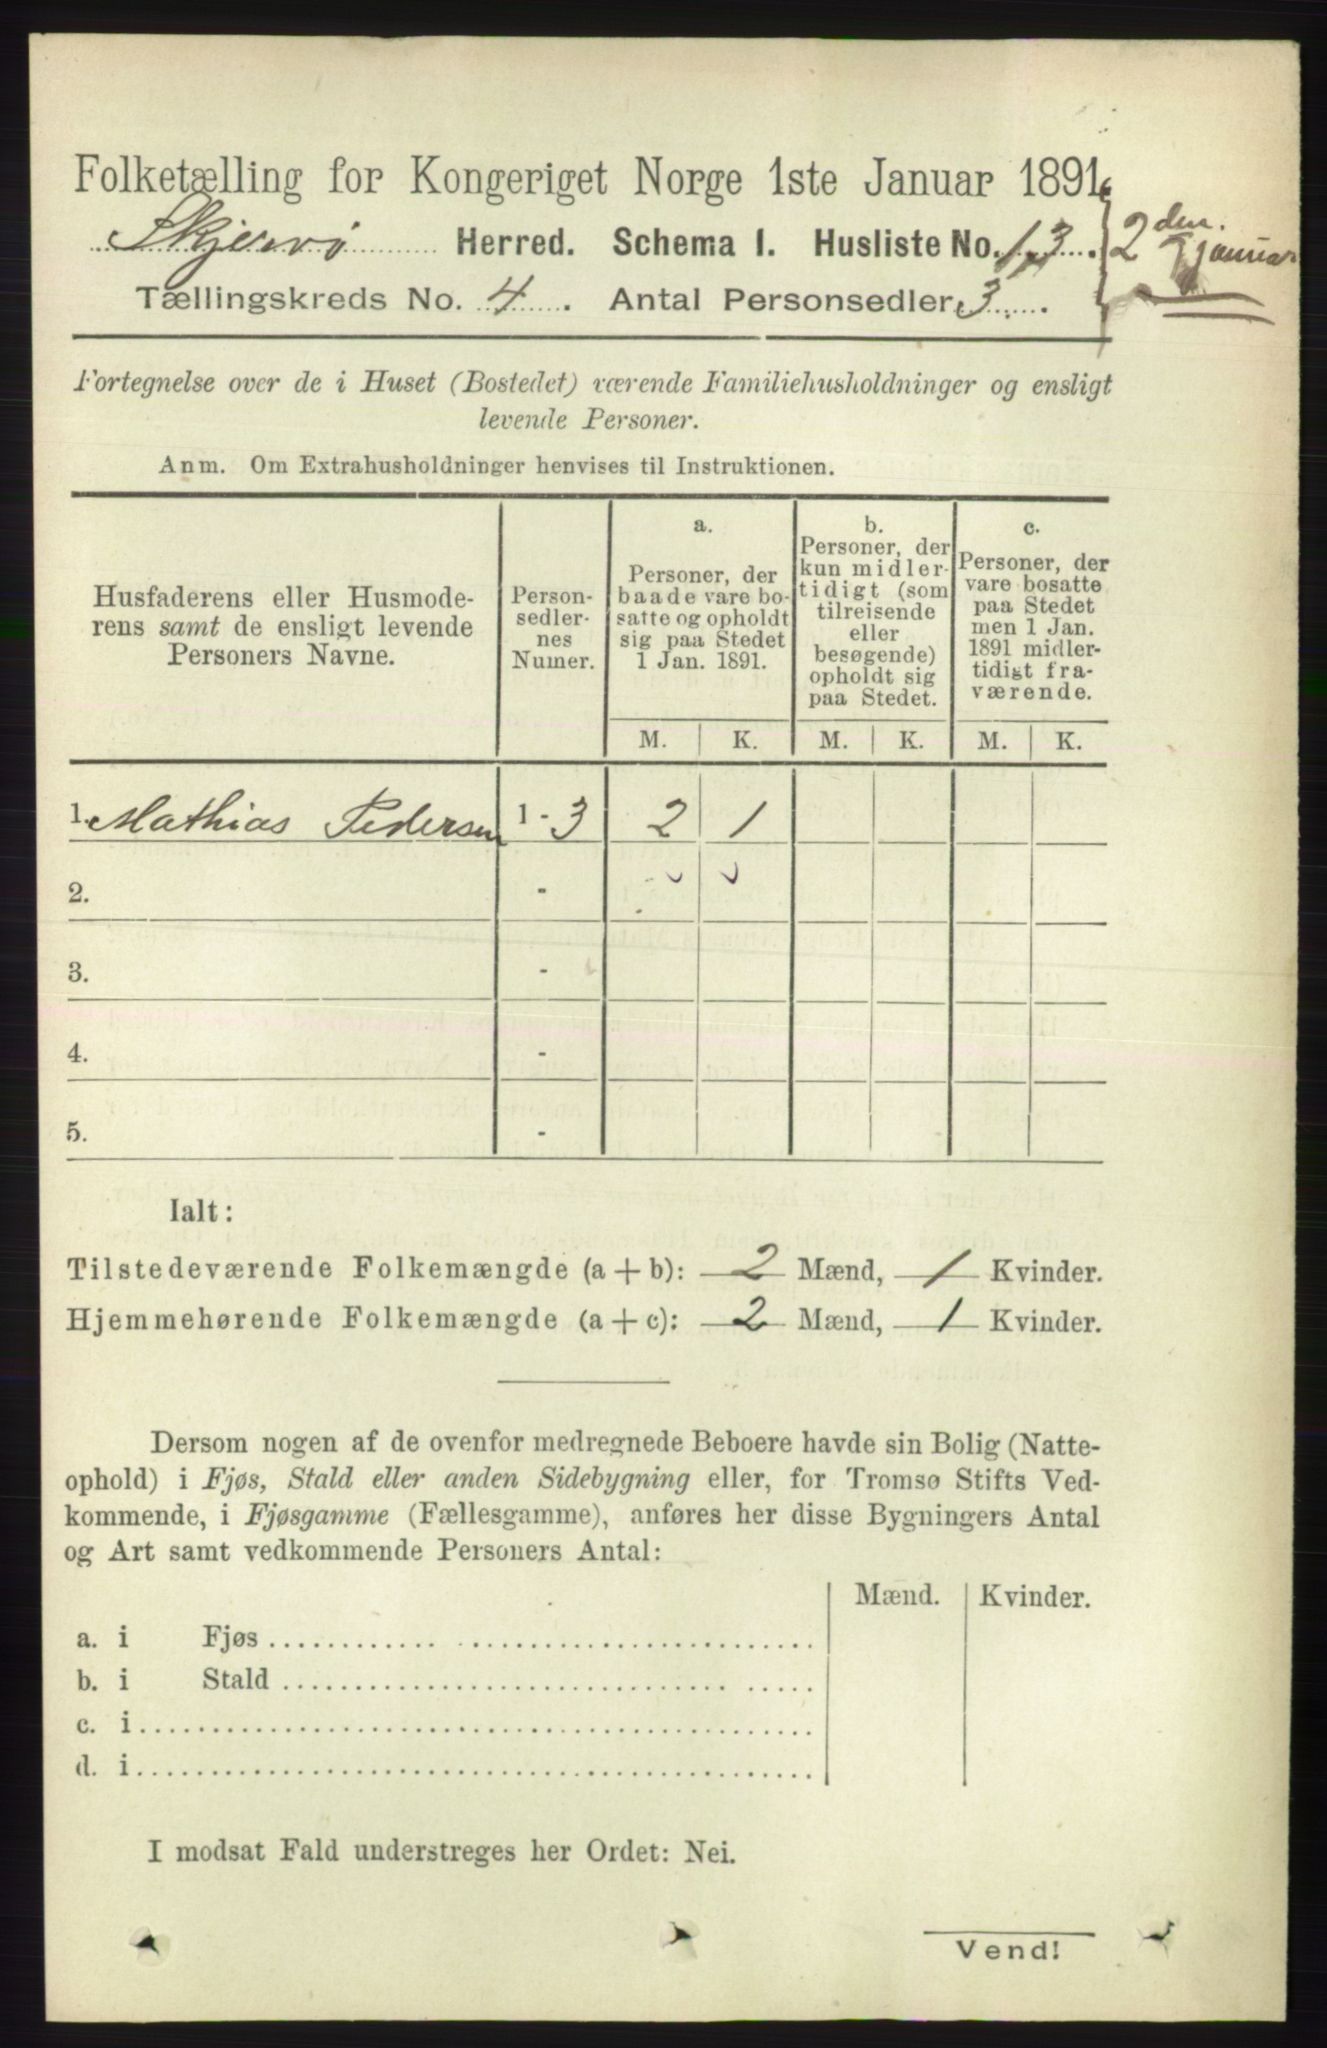 Folketælling for Kongeriget Norge 1ste Januar 1891.
Skjervø Herred. Schema I. Husliste No. 13.
2den Januar
Tællingskreds No. 4. Antal Personsedler 3.
Fortegnelse over de i Huset (Bostedet) værende Familiehusholdninger og ensligt
levende Personer.
Anm. Om Extrahusholdninger henvises til Instruktionen.
Husfaderens eller Husmode-
rens samt de ensligt levende
Personers Navne.
Person-
sedler-
nes
Numer.
a.
Personer, der
baade vare bo-
satte og opholdt
sig paa Stedet
1 Jan. 1891.
b.
Personer, der
kun midler-
tidigt (som
tilreisende
eller
besøgende)
opholdt sig
paa Stedet.
c.
Personer, der
vare bosatte
paa Stedet
men 1 Jan.
1891 midler-
tidigt fra-
værende.
M. K. M. K. M. K.
1. Mathias Pedersen 1 - 3 2 1
2. -
3. -
4. -
5. -
Ialt:
Tilstedeværende Folkemængde (a + b): 2 Mænd, 1 Kvinder.
Hjemmehørende Folkemængde (a + c): 2 Mænd, 1 Kvinder.
Dersom nogen af de ovenfor medregnede Beboere havde sin Bolig (Natte-
ophold) i Fjøs, Stald eller anden Sidebygning eller, for Tromsø Stifts Ved-
kommende, i Fjøsgamme (Fællesgamme), anføres her disse Bygningers Antal
og Art samt vedkommende Personers Antal:
Mænd. Kvinder.
a. i Fjøs
b. i Stald
c. i
d. i
I modsat Fald understreges her Ordet: Nei.
Vend!